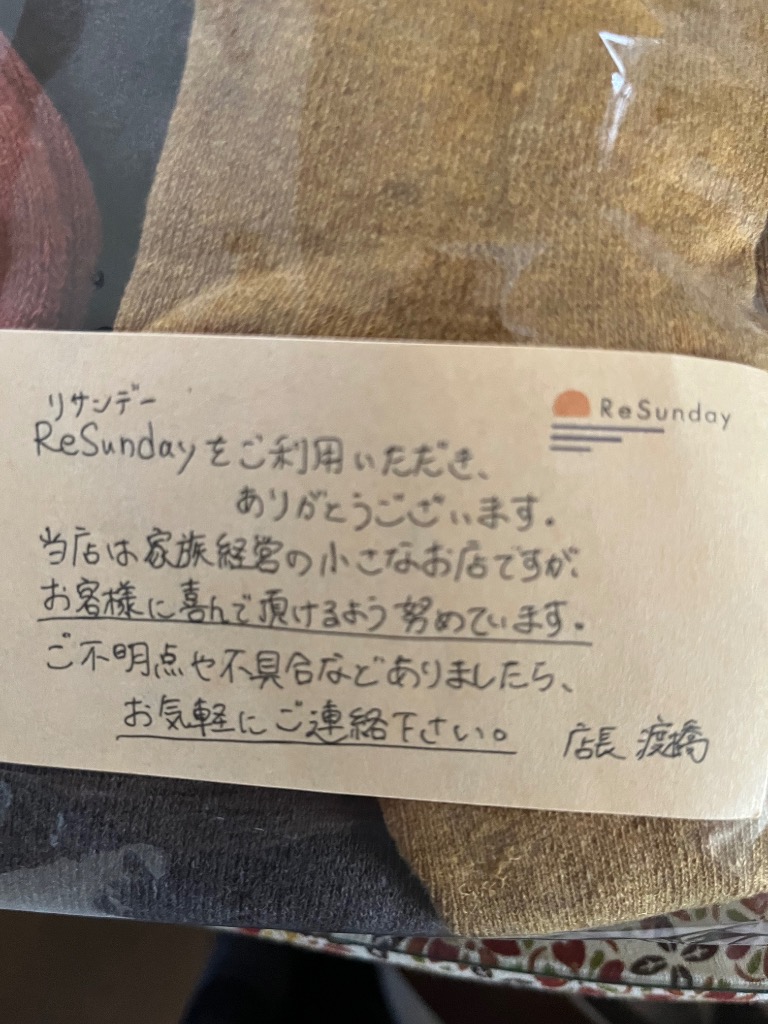 ReSunday
リサンデー
ReSundayをご利用いただき、
ありがとうございます。
当店は家族経営の小さなお店ですが、
お客様に喜んで頂けるよう努めています。
ご不明点や不具合などありましたら、
お気軽にご連絡下さい。 店長 渡橋